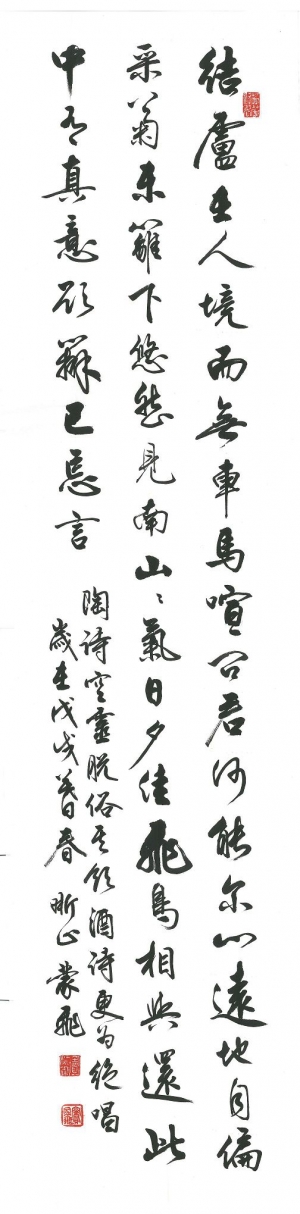 結廬在人境而無車馬喧問君何能尔心遠地自偏
采菊東籬下悠然見南山〻氣日夕佳飛鳥相與還此
中有真意欲辯已忘言
陶詩空靈脫俗其飲酒詩更為絕唱
歲在戊戌暮春 蒙飛